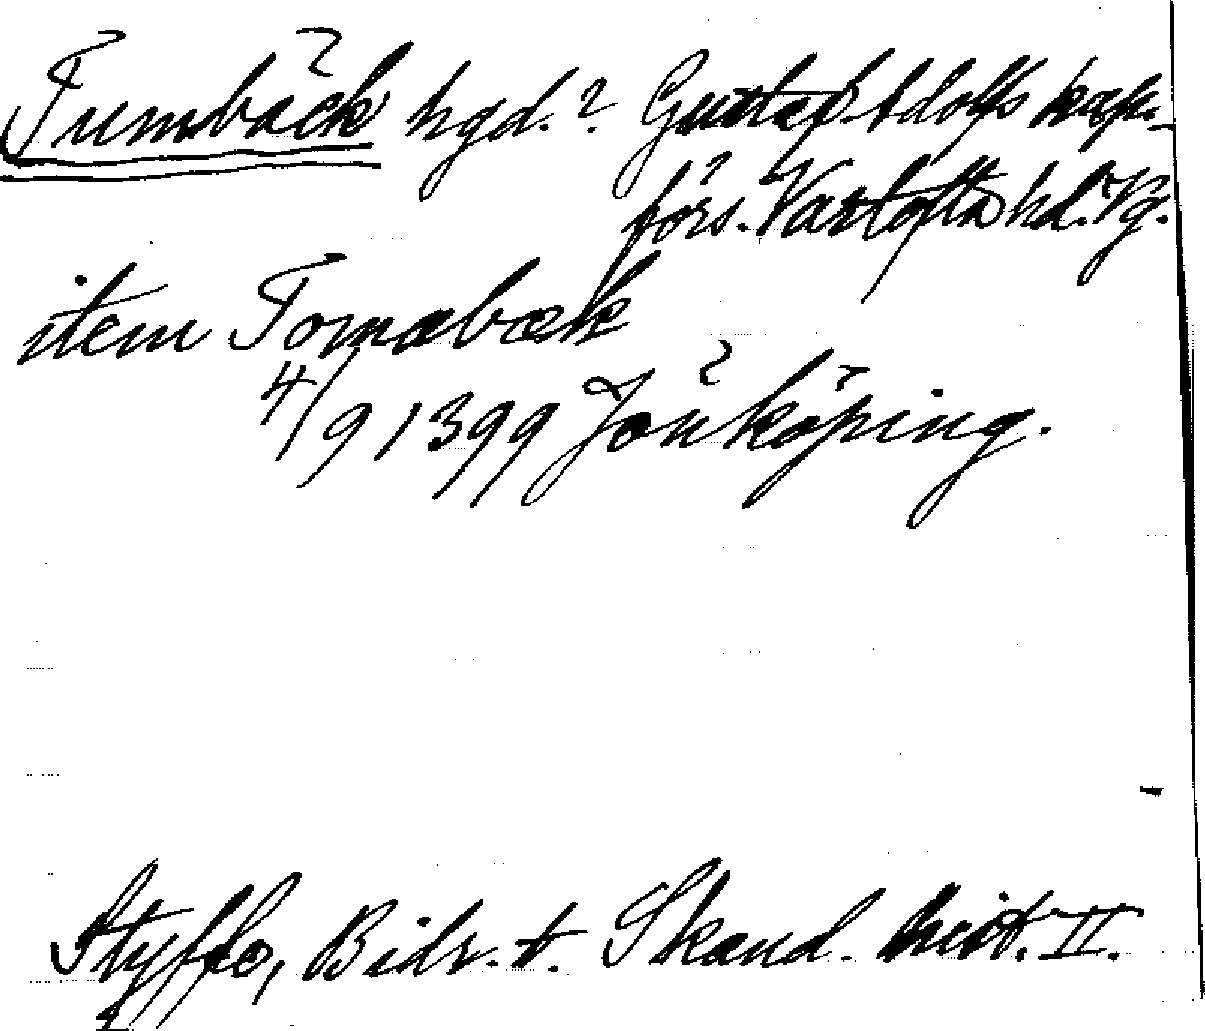 Tumbäck hgd.? Gustaf Adolfs kap.
förs. Vartofta hd. Vg.
item Tomabæk
4/9 1399 Jönköping.
Styffe, Bidr. t. Skand. hist. II.